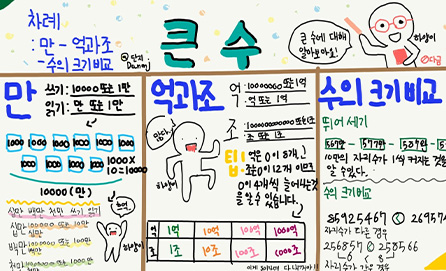 차례
: 만 - 억과조
- 수의 크기 비교
큰 수
큰 수에 대해
알아보아요!
하양이
만
쓰기: 10000 또는 1만
읽기: 만 또는 1만
1000 1000 1000 1000 1000
1000 1000 1000 1000 1000
1000×
10=10000
10000(만)
십만 백만 천만 쓰기 읽기
십만
100000 또는 10만
십만
백만
하양이
억과조
억: 100000000 또는 1억
: 억 또는 1억
조: 1000000000000 또는 1조
: 조 또는 1조
하양이
팁: 억은 0이 8개,
조는 0이 12개 이므로
0이 4개씩 늘어나는것
을 알 수 있습니다.
억 1억 10억 100억 1000억
조 1조 10조 100조 1000조
수의 크기 비교
뛰어 세기
567만 - 577만 - 587만
10만의 자리수가 1씩 커지는 것을
알 수 있다.
수의 크기비교
자리수가 다른 경우
256857 < 258566
6 8